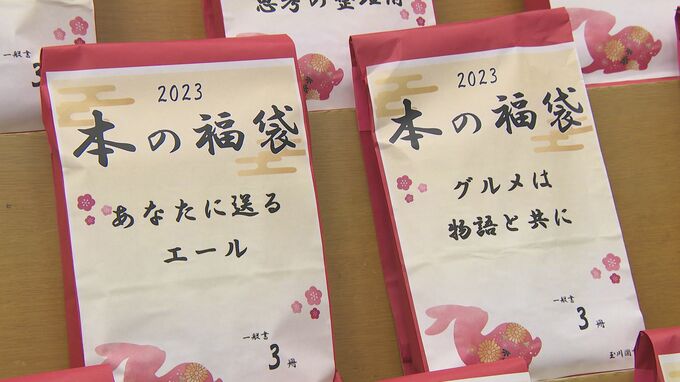 一般書
3
思考の整理術
2023
本の福袋
あなたに送る
エール
一般書
3冊
2023
本の福袋
グルメは
物語と共に
一般書
3冊
玉川図